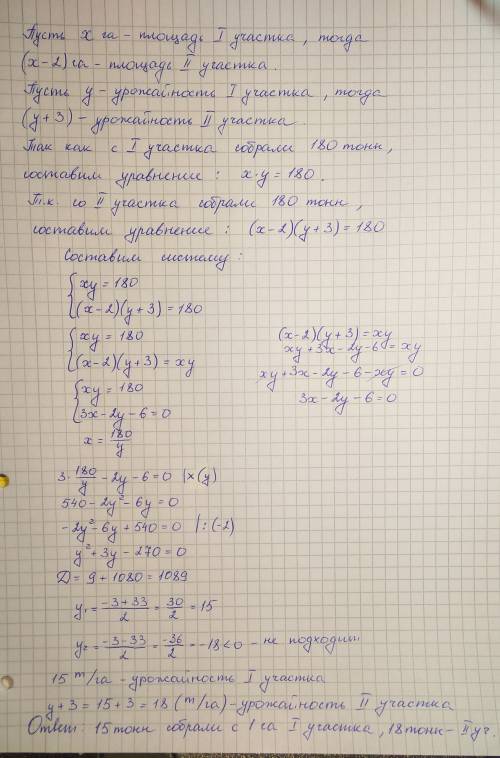 Пусть x га - площадь I участка, тогда
(x-2) га - площадь II участка.
Пусть y - урожайность I участка, тогда
(y+3) - урожайность II участка.
Так как с I участка собрали 180 тонн,
составим уравнение: x·y = 180.
Т.к. со II участка собрали 180 тонн,
составим уравнение: (x-2)(y+3) = 180
Составим систему:
{xy = 180
{(x-2)(y+3) = 180
{xy = 180
{(x-2)(y+3) = xy
{xy = 180
{3x-2y-6=0
x = 180/y
(x-2)(y+3) = xy
xy+3x-2y-6 = xy
xy+3x-2y-6-xy = 0
3x-2y-6=0
3·180/y - 2y - 6 = 0 |×(y)
540 - 2y² - 6y = 0
-2y² - 6y + 540 = 0 |:(-2)
y² + 3y - 270 = 0
D = 9 + 1080 = 1089
y₁ = (-3+33)/2 = 30/2 = 15
y₂ = (-3-33)/2 = -36/2 = -18 < 0 - не подходит
15 т/га - урожайность I участка
y+3 = 15+3 = 18 (т/га) - урожайность II участка
Ответ: 15 тонн собрали с 1 га I участка, 18 тонн - II уч.